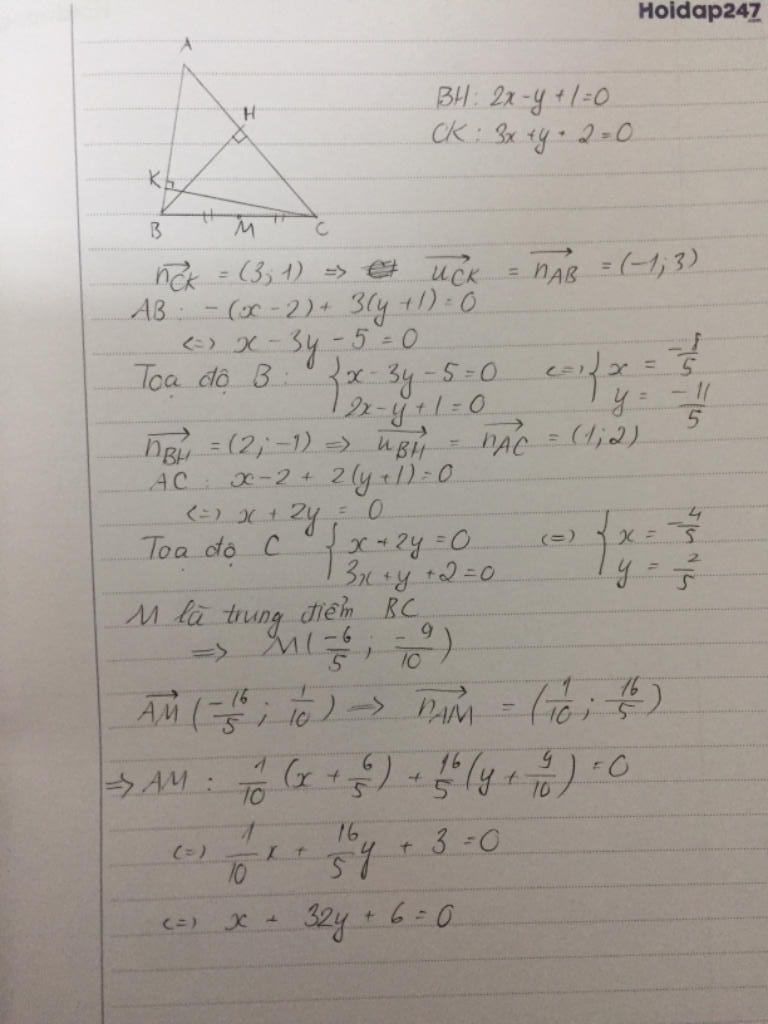 Hoidap247
A
H
K
B
M
C
BH: 2x-y+1=0
CK: 3x+y+2=0
n⃗CK = (3;1) => u⃗CK = n⃗AB = (-1;3)
AB: -(x-2)+3(y+1)=0
<=> x-3y-5=0
Toạ độ B: { x-3y-5=0 <=> { x = -8/5
2x-y+1=0 y = -11/5
n⃗BH = (2;-1) => u⃗BH = n⃗AC = (1;2)
AC: x-2+2(y+1)=0
<=> x+2y = 0
Toạ độ C { x+2y=0 <=> { x = -4/5
3x+y+2=0 y = 2/5
M là trung điểm BC
=> M(-6/5; -9/10)
A⃗M(-16/5; 1/10) => n⃗AM = (1/10; 16/5)
=> AM: 1/10(x+6/5)+16/5(y+9/10)=0
<=> 1/10x + 16/5y + 3 = 0
<=> x + 32y + 6 = 0